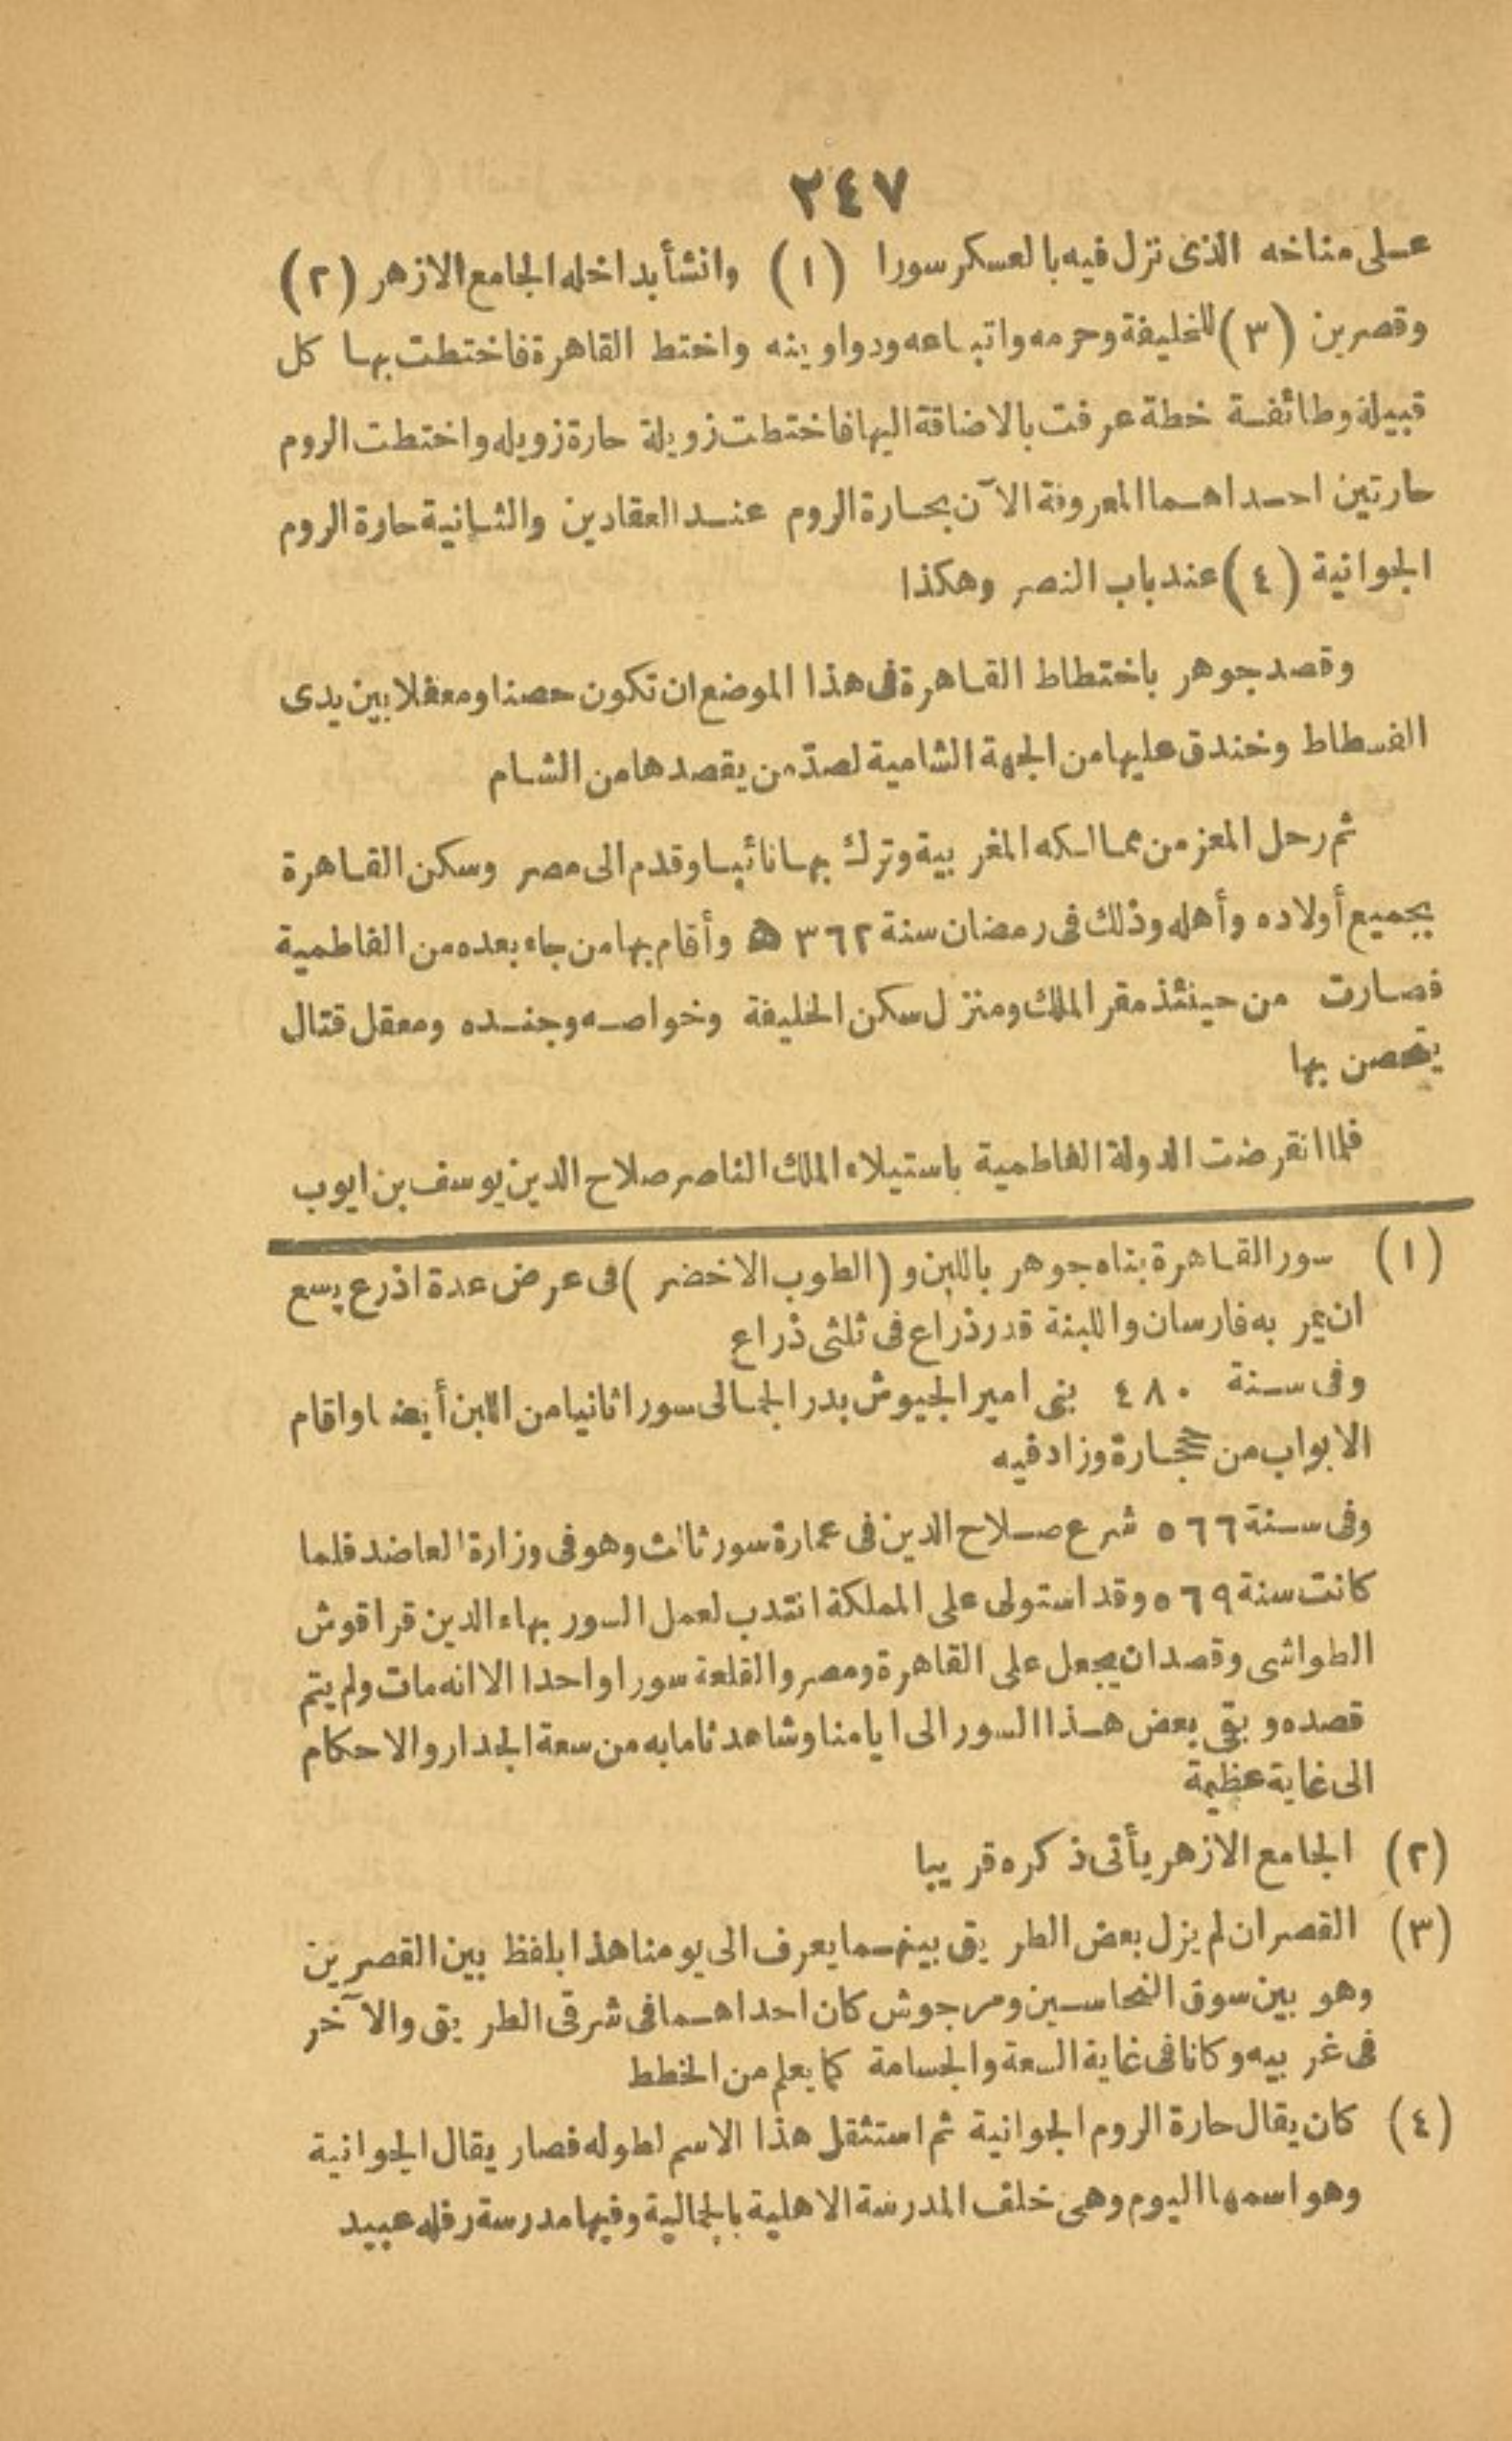 ٢٤٧
على مناخه الذى نزل فيه بالعسكر سورا (١) وانشأ بداخله الجامع الازهر (٢)
وقصرين (٣) للخليفة وحرمه واتباعه ودواوينه واختط القاهرة فاختطت بها كل
قبيلة وطائفة خطة عرفت بالاضاقة اليها فاختطت زويلة حارة زويله واختطت الروم
حارتين احداهما المعروفة الآن بحارة الروم عند العقادين والثانية حارة الروم
الجوانية (٤) عند باب النصر وهكذا
وقصد جوهر باختطاط القاهرة فى هذا الموضع ان تكون حصنا ومعقلا بين يدى
الفسطاط وخندق عليها من الجهة الشامية لصدّ من يقصدها من الشام
ثم رحل المعز من ممالكه المغربية وترك بها نائبا وقدم الى مصر وسكن القاهرة
بجميع أولاده وأهله وذلك فى رمضان سنة ٣٦٢ ه وأقام بها من جاء بعده من الفاطمية
فصارت من حينئذ مقر الملك ومنزل سكن الخليفة وخواصه وجنده ومعقل قتال
يتحصن بها
فلما انقرضت الدولة الفاطمية باستيلاء الملك الناصر صلاح الدين يوسف بن ايوب
(١) سور القاهرة بناه جوهر باللبن و (الطوب الاخضر) فى عرض عدة اذرع يسع
ان يمر به فارسان واللبنة قدر ذراع فى ثلثى ذراع
وفى سنة ٤٨٠ بنى امير الجيوش بدر الجمالى سورا ثانيا من اللبن أيضا واقام
الابواب من حجارة وزاد فيه
وفى سنة ٥٦٦ شرع صلاح الدين فى عمارة سور ثالث وهو فى وزارة العاضد فلما
كانت سنة ٥٦٩ وقد استولى على المملكة انتدب لعمل السور بهاء الدين قراقوش
الطواشى وقصد ان يجعل على القاهرة ومصر والقلعة سورا واحدا الا انه مات ولم يتم
قصده وبقى بعض هذا السور الى ايامنا وشاهدنا مابه من سعة الجدار والاحكام
الى غاية عظيمة
(٢) الجامع الازهر يأتى ذكره قريبا
(٣) القصران لم يزل بعض الطريق بينهما يعرف الى يومنا هذا بلفظ بين القصرين
وهو بين سوق النحاسين ومرجوش كان احداهما فى شرقى الطريق والآخر
فى غربيه وكانا فى غاية السعة والجسامة كما يعلم من الخطط
(٤) كان يقال حارة الروم الجوانية ثم استثقل هذا الاسم لطوله فصار يقال الجوانية
وهو اسمها اليوم وهى خلف المدرسة الاهلية بالجمالية وفيها مدرسة رفله عبيد